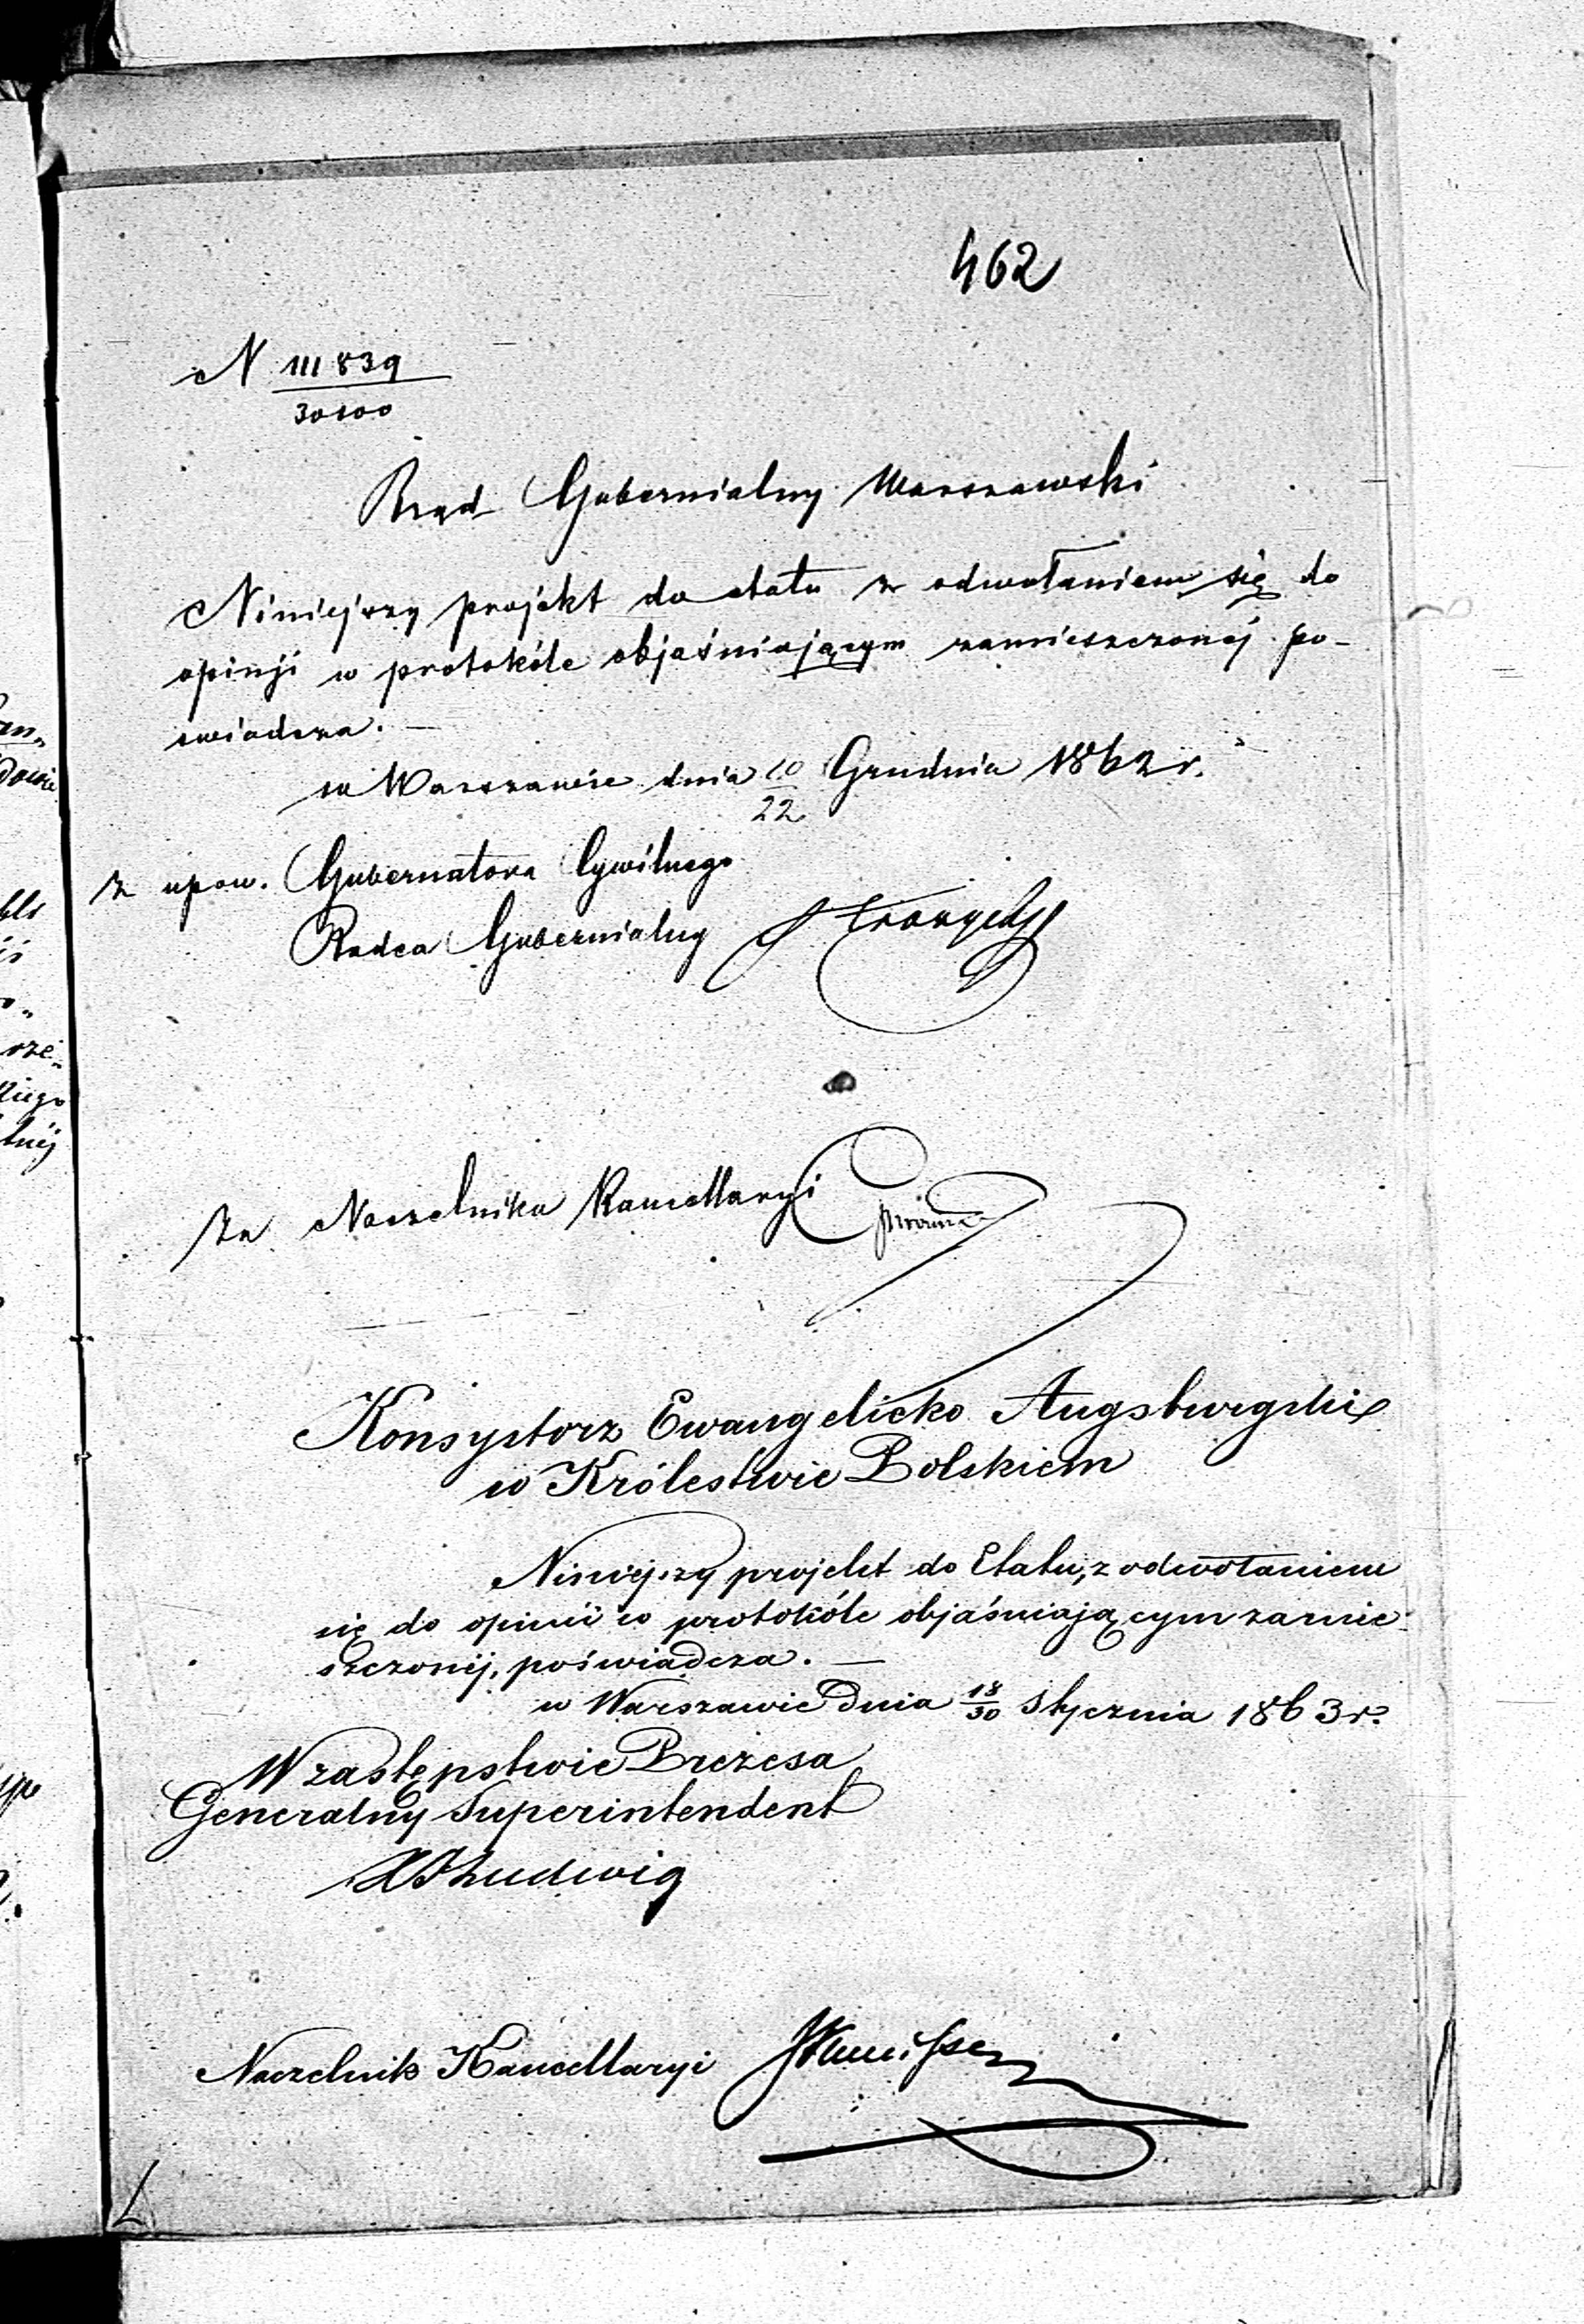 462
N 111839
30100
Rząd Gubernialny Warszawski
Niniejszy projekt do etatu z odwołaniem się do
opinji w protokóle objaśniającym zamieszczonej po-
swiadcza. —
w Warszawie dnia 10/22 Grudnia 1862 r.
z upow. Gubernatora Cywilnego
Radca Gubernialny
Za Naczelnika Kancellaryi
Konsystorz Ewangelicko Augsburgski
w Królestwie Polskiem
Niniejszy projekt do Etatu, z odwołaniem
się do opinii w protokóle objaśniającym zamie-
szczonéj, poświadcza. —
w Warszawie dnia 18/30 Stycznia 1863 r.
W zastępstwie Prezesa
Generalny Superintendent
Ludwig
Naczelnik Kancellaryi